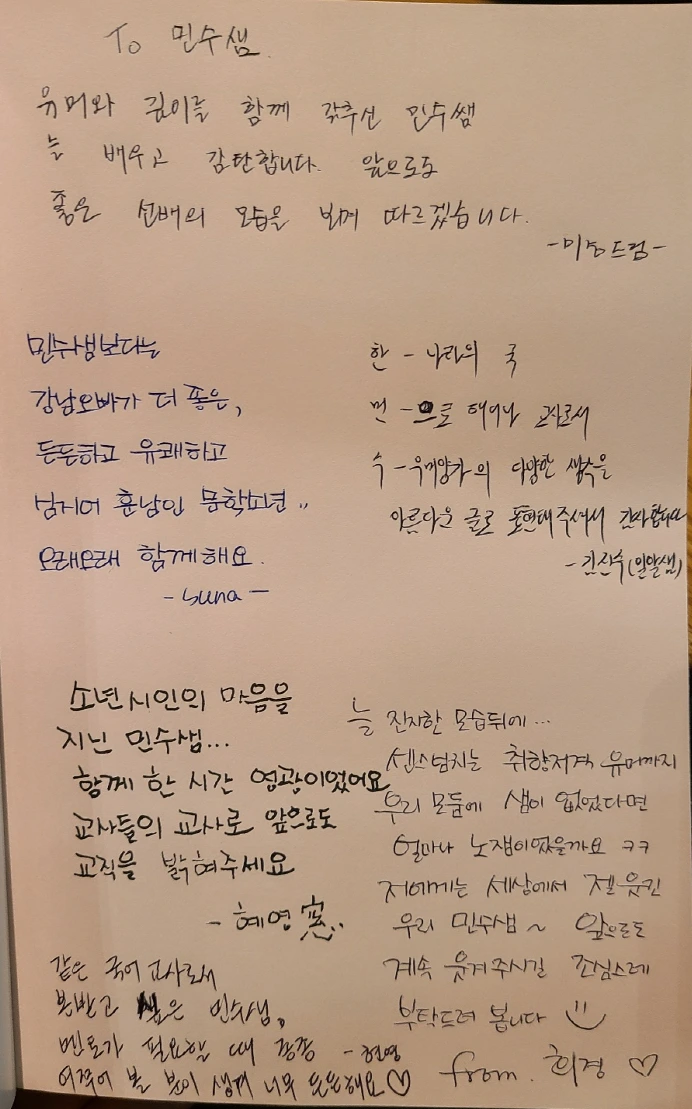 To 민수샘
유머와 깊이를 함께 갖추신 민수쌤
늘 배우고 감탄합니다. 앞으로도
좋은 선배의 모습을 보며 따르겠습니다.
-미정드림-
민수샘보다는
강남오빠가 더 좋은,
든든하고 유쾌하고
심지어 훈남인 문학소년..
오래오래 함께해요.
- suna -
한 - 나라의 국
민 - 으로 태어나 교사로서
수 - 우미양가의 다양한 생각을
아름다운 글로 표현해주셔서 감사합니다
- 김진수(밀알샘)
소년시인의 마음을
지닌 민수샘...
함께 한 시간 영광이었어요
교사들의 교사로 앞으로도
교직을 밝혀주세요
- 혜영
늘 진지한 모습뒤에...
센스넘치는 취향저격 유머까지
우리 모둠에 샘이 없었다면
얼마나 노잼이었을까요 ㅋㅋ
저에게는 세상에서 젤 웃긴
우리 민수샘~ 앞으로도
계속 웃겨주시길 조심스레
부탁드려 봅니다
from. 희경 ♡
같은 국어교사로서
본받고 싶은 민수샘,
멘토가 필요할 때 종종 - 현영
여쭈어 볼 분이 생겨 너무 든든해요♡